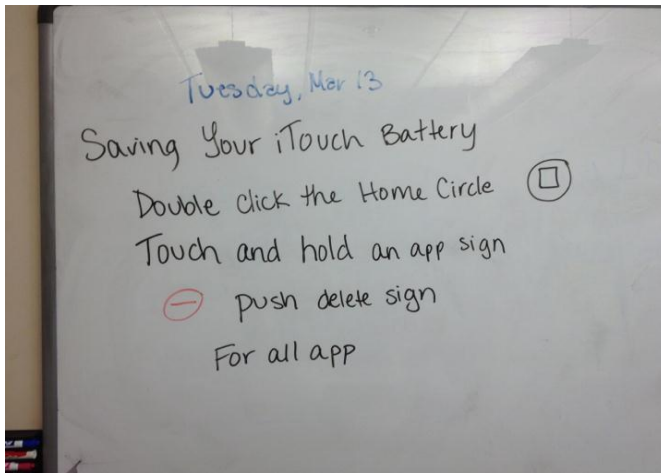 Tuesday, Mar 13
Saving Your iTouch Battery
Double click the Home Circle
Touch and hold an app sign
push delete sign
For all app